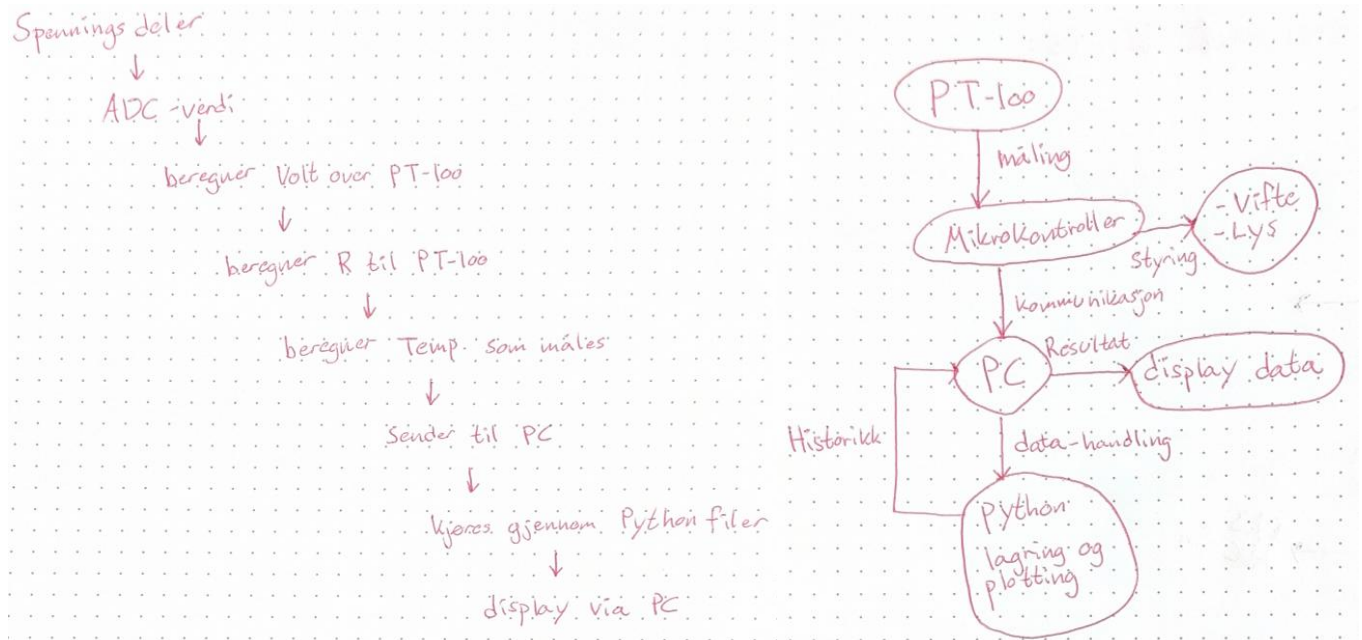 Spenningsdeler
ADC-verdi
beregner Volt over PT-100
beregner R til PT-100
beregner Temp. som måles
Sender til PC
Kjøres gjennom Python filer
display via PC
PT-100
måling
Mikrokontroller
- Vifte
- Lys
Styring
Kommunikasjon
PC
Resultat
display data
Historikk
data-handling
Python
lagring og
plotting